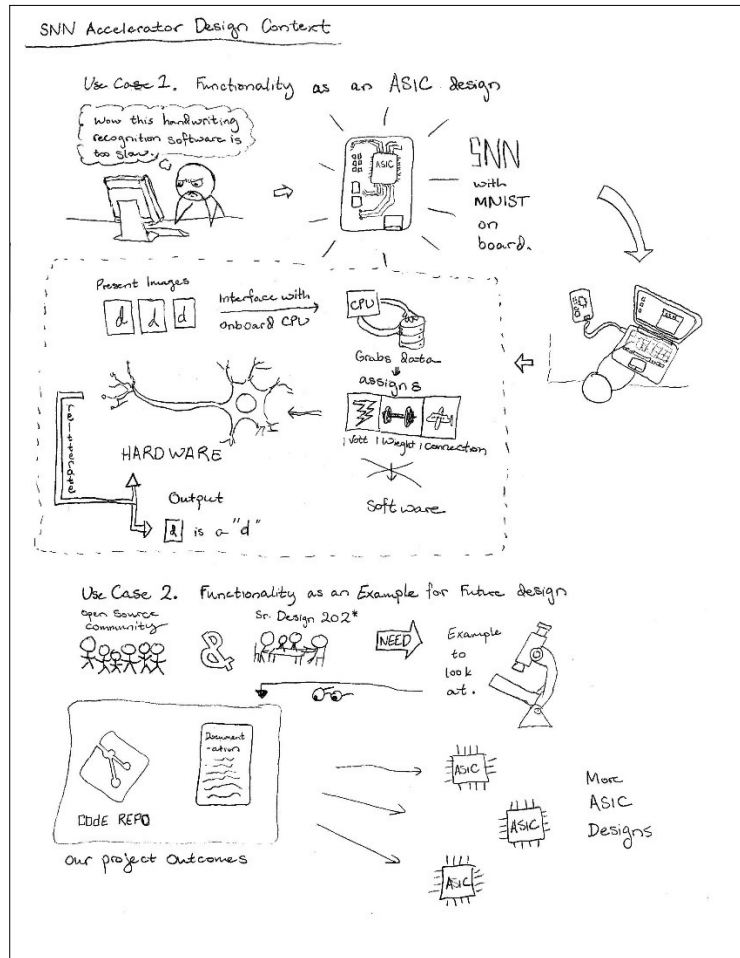 SNN Accelerator Design Context
Use Case 1. Functionality as an ASIC design
Wow this handwriting
recognition software is
too slow.
ASIC
SNN
with
MNIST
on
board.
Present Images
d d d
Interface with
onboard CPU
CPU
Grabs data
assigns
1 Volt 1 Weight 1 Connection
Software
HARDWARE
Output
d is a "d"
Use Case 2. Functionality as an Example for Future design
open source
community
&
Sr. Design 202*
NEED
Example
to
look
at.
Document
-ation
CODE REPO
our project outcomes
ASIC
ASIC
ASIC
More
ASIC
Designs